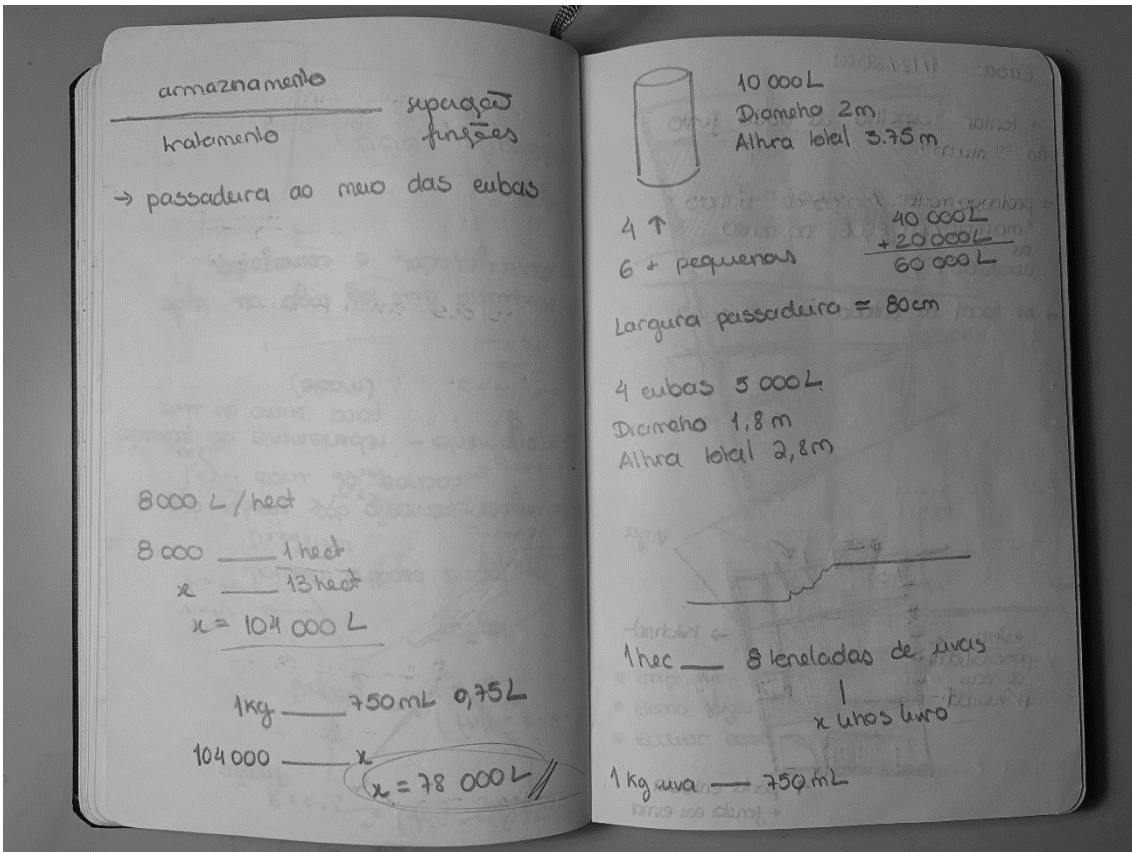 armaznamento
tratamento
separação
funções
→ passadeira ao meio das cubas
8000 L/hect
8 000 ___ 1 hect
x ___ 13 hect
x = 104 000 L
1kg ___ 750 mL 0,75L
104 000 ___ x
x = 78 000L
10 000L
Diametro 2m
Altura total 3.75m
4 ↑
6 + pequenas
40 000L
+20 000L
60 000L
Largura passadeira ≈ 80cm
4 cubas 5 000L
Diametro 1,8m
Altura total 2,8m
1 hec ___ 8 toneladas de uvas
x
1 kg uva — 750 mL